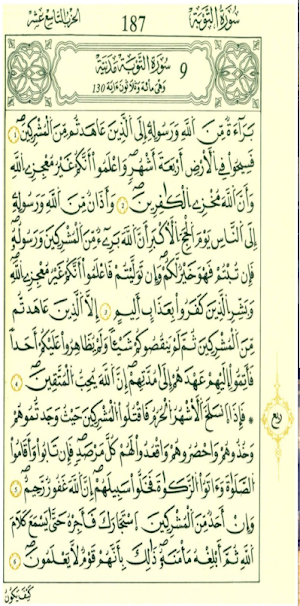 سُورَةُ التَّوْبَةِ 187 الحزب التاسع عشر
9 سُورَةُ التَّوْبَةِ مَدَنِيَّة
وَهْيَ مِائَة وَثَلَاثُونَ ءَايَة 130
بَرَآءَةٌ مِّنَ اَللَّهِ وَرَسُولِهِۦٓ إِلَى اَلذِينَ عَٰهَدتُّم مِّنَ اَلْمُشْرِكِينَۖ ١
فَسِيحُواْ فِے اِلْأَرْضِ أَرْبَعَةَ أَشْهُرٖ وَاعْلَمُوٓاْ أَنَّكُمْ غَيْرُ مُعْجِزِے اِللَّهِ
وَأَنَّ اَللَّهَ مُخْزِے اِلْكَٰفِرِينَۖ ٢ وَأَذَٰنٌ مِّنَ اَللَّهِ وَرَسُولِهِۦٓ
إِلَى اَلنَّاسِ يَوْمَ اَلْحَجِّ اِلْأَكْبَرِ أَنَّ اَللَّهَ بَرِےٓءٌ مِّنَ اَلْمُشْرِكِينَ وَرَسُولُهُۥۖ
فَإِن تُبْتُمْ فَهُوَ خَيْرٌ لَّكُمْۖ وَإِن تَوَلَّيْتُمْ فَاعْلَمُوٓاْ أَنَّكُمْ غَيْرُ مُعْجِزِے اِللَّهِۖ
وَبَشِّرِ اِلذِينَ كَفَرُواْ بِعَذَابٍ أَلِيمٍ ٣ اِلَّا اَلذِينَ عَٰهَدتُّم
مِّنَ اَلْمُشْرِكِينَ ثُمَّ لَمْ يَنقُصُوكُمْ شَيْـٔاٗ وَلَمْ يُظَٰهِرُواْ عَلَيْكُمُۥٓ أَحَداٗ
فَأَتِمُّوٓاْ إِلَيْهِمْ عَهْدَهُمُۥٓ إِلَىٰ مُدَّتِهِمُۥٓۖ إِنَّ اَللَّهَ يُحِبُّ اُلْمُتَّقِينَۖ ٤
۞ فَإِذَا اَنسَلَخَ اَلْأَشْهُرُ اُلْحُرُمُ فَاقْتُلُواْ اُلْمُشْرِكِينَ حَيْثُ وَجَدتُّمُوهُمْ
وَخُذُوهُمْ وَاحْصُرُوهُمْ وَاقْعُدُواْ لَهُمْ كُلَّ مَرْصَدٖۖ فَإِن تَابُواْ وَأَقَامُواْ
اُلصَّلَوٰةَ وَءَاتَوُاْ اُلزَّكَوٰةَ فَخَلُّواْ سَبِيلَهُمُۥٓۖ إِنَّ اَللَّهَ غَفُورٌ رَّحِيمٌۖ ٥
وَإِنَ اَحَدٌ مِّنَ اَلْمُشْرِكِينَ اَسْتَجَارَكَ فَأَجِرْهُ حَتَّىٰ يَسْمَعَ كَلَٰمَ
اَللَّهِ ثُمَّ أَبْلِغْهُ مَأْمَنَهُۥۖ ذَٰلِكَ بِأَنَّهُمْ قَوْمٌ لَّا يَعْلَمُونَۖ ٦
ربع
كَيْفَ يَكُونُ